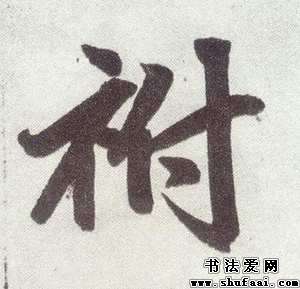 祔
书法爱网
www.shufaai.com